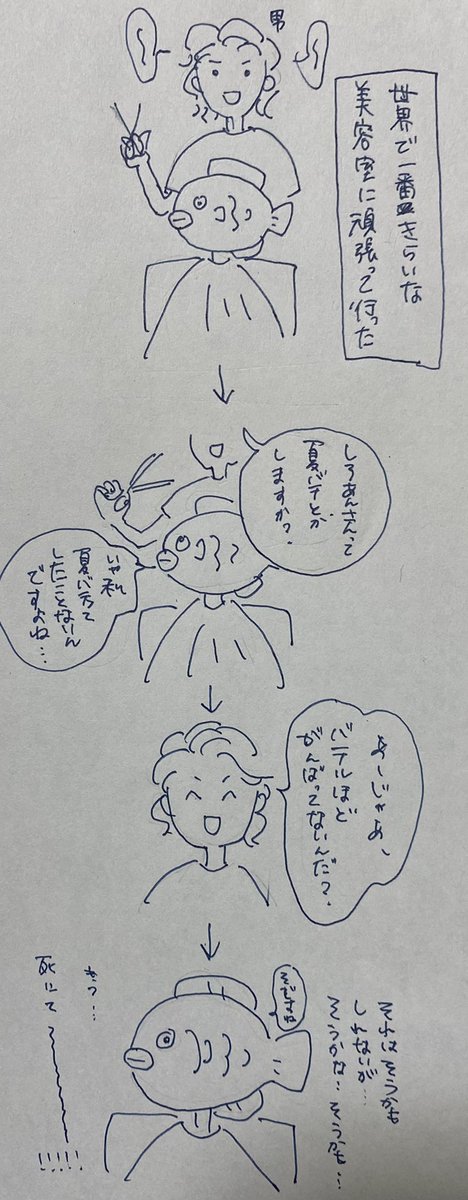 世界で一番きらいな
美容室に頑張って行った
男
しろあんさんって
夏バテとか
しますか？
いや私
夏バテって
したことないん
ですよね…
あーじゃあ、
バテルほど
がんばってないんだ？
それはそうかも
しれないが…
そうかな…そうかも…
そうですね
もう…
死にて〜〜〜〜!!!!!